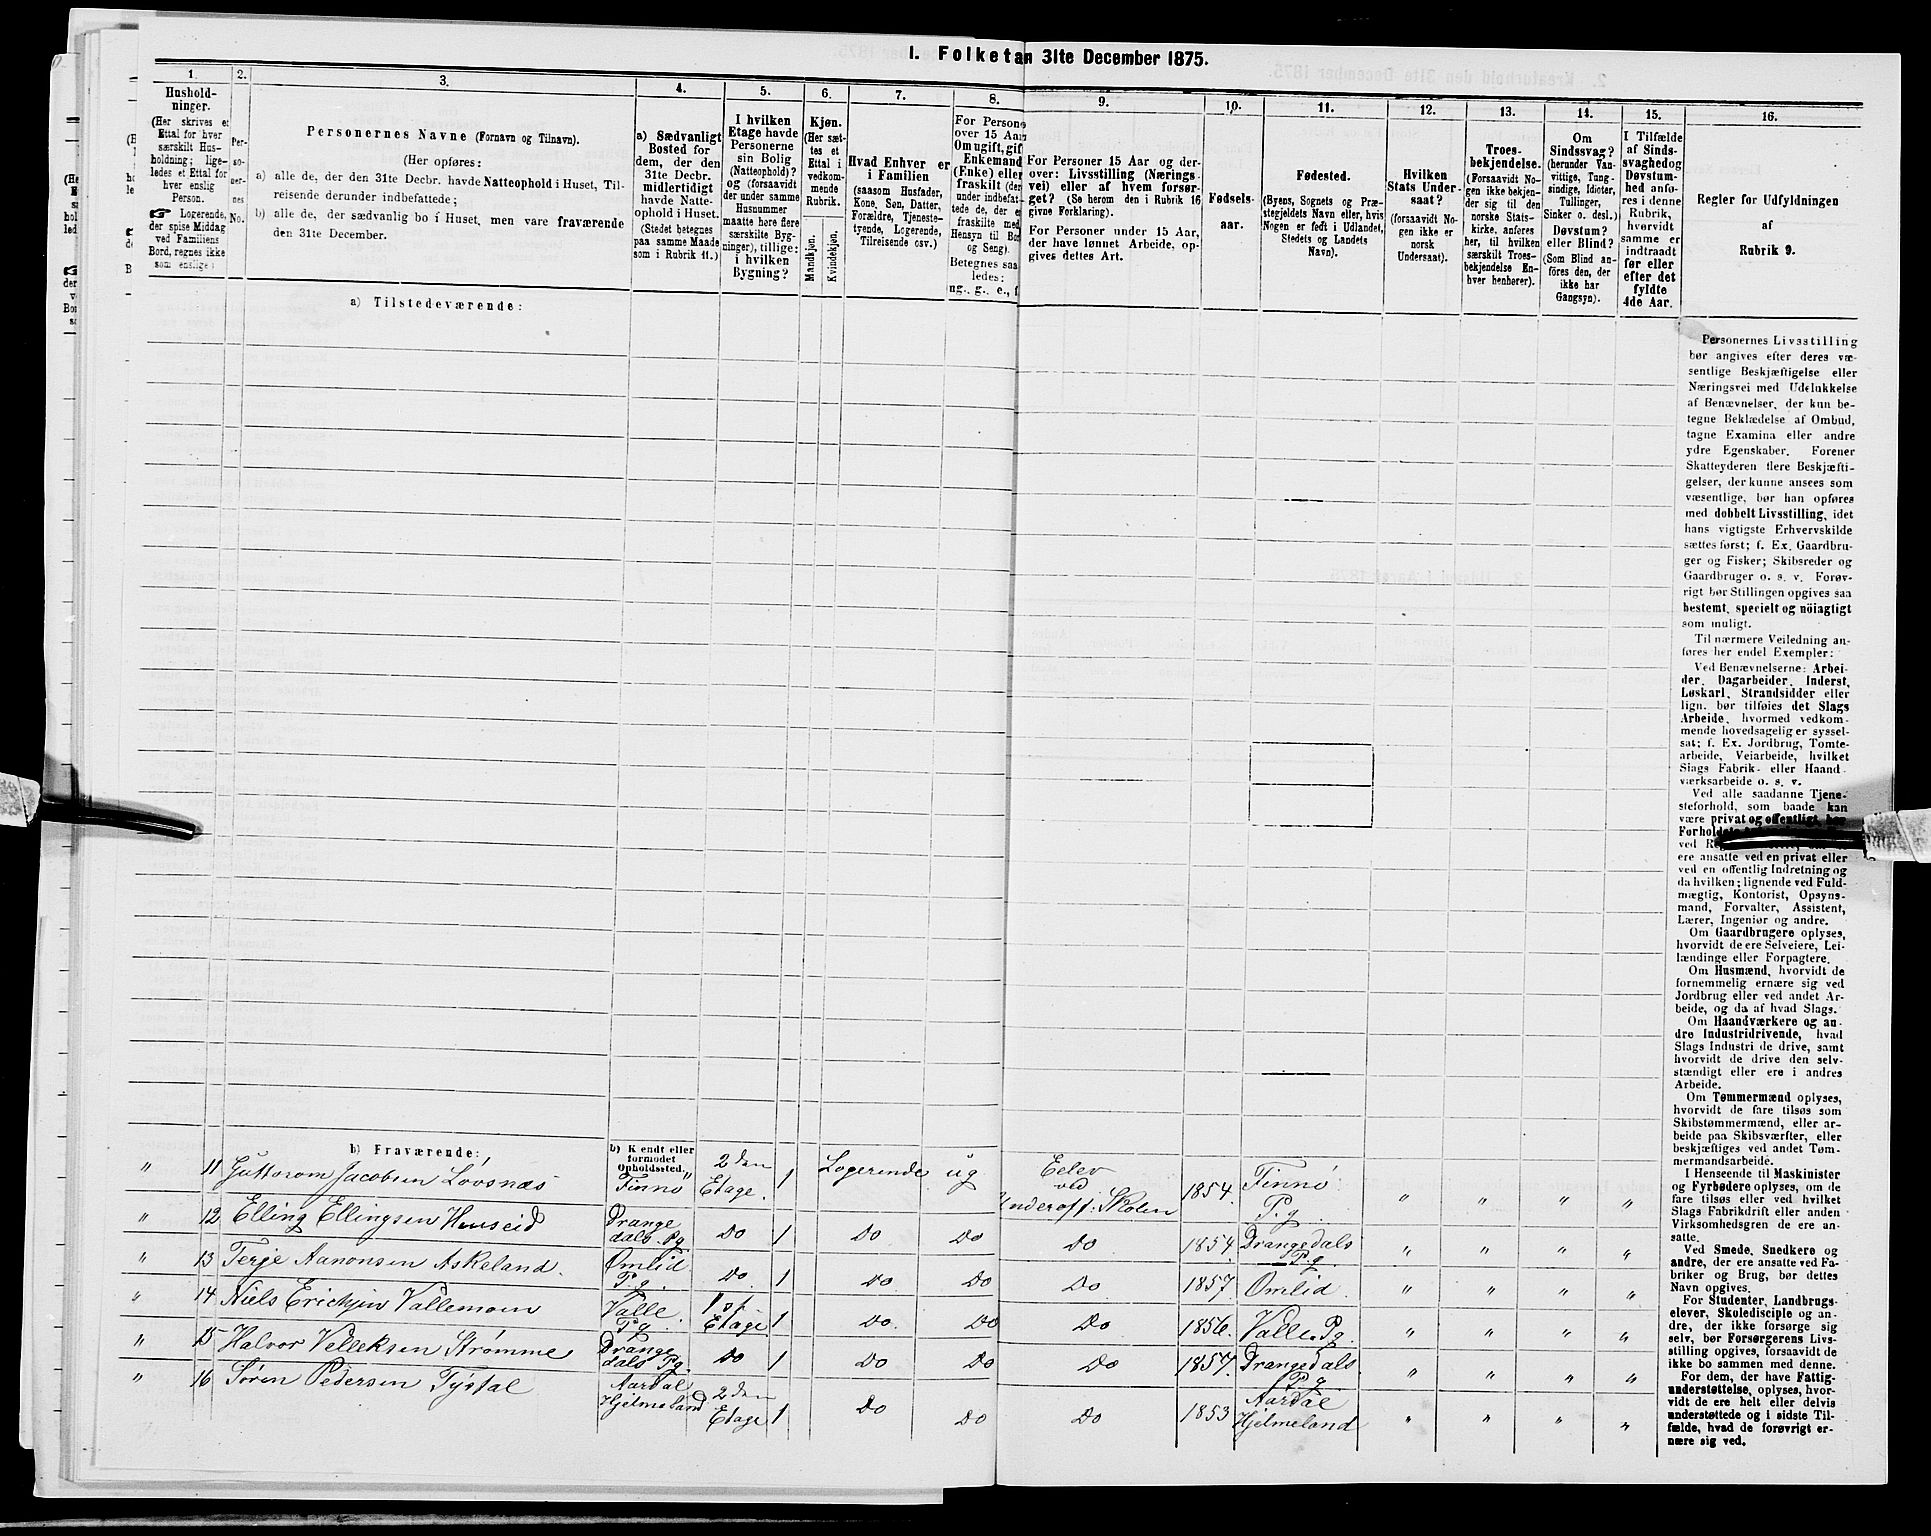 1. Folketan 31te December 1875.
1.
Hushold-
ninger.
(Her skrives et
Ettal for hver
særskilt Hus-
holdning; lige-
ledes et Ettal for
hver enslig
Person.
☛ Logerende,
der spise Middag
ved Familiens
Bord, regnes ikke
som enslige)
2.
Per-
so-
ner-
nes
No.
3.
Personernes Navne (Fornavn og Tilnavn).
(Her opføres:
a) alle de, der den 31te Decbr. havde Natteophold i Huset, Til-
reisende derunder indbefattede;
b) alle de, der sædvanlig bo i Huset, men vare fraværende
den 31te December.
4.
a) Sædvanligt
Bosted for
dem, der den
31te Decbr.
midlertidigt
havde Natte-
ophold i Huset.
(Stedet betegnes
paa samme Maade
som i Rubrik 11.)
5.
I hvilken
Etage havde
Personerne
sin Bolig
(Natteophold)?
og (forsaavidt
der under samme
Husnummer
maatte høre flere
særskilte Byg-
ninger), tillige:
i hvilken
Bygning?
6.
Kjøn.
(Her sæt-
tes et
Ettal i
vedkom-
mende
Rubrik.
Mandkjøn.
Kvindekjøn.
7.
Hvad Enhver er
i Familien
(saasom Husfader,
Kone, Søn, Datter,
Forældre, Tjeneste-
tyende, Logerende,
Tilreisende osv.)
8.
For Persone
over 15 Aar
Om ugift, gif
Enkemand
(Enke) eller
fraskilt (der
under indbefat-
tede de, der e
fraskilte med
Hensyn til Bo
og Seng).
Betegnes saa
ledes:
ug., g., e., f
9.
For Personer 15 Aar og der-
over: Livsstilling (Nærings-
vei) eller af hvem forsør-
get? (Se herom den i Rubrik 16
givne Forklaring).
For Personer under 15 Aar,
der have lønnet Arbeide, op-
gives dettes Art.
10.
Fødsels-
aar.
11.
Fødested.
(Byens, Sognets og Præ-
stegjeldets Navn eller, hvis
Nogen er født i Udlandet,
Stedets og Landets
Navn).
12.
Hvilken
Stats Under-
saat?
(forsaavidt No-
gen ikke er
norsk
Undersaat).
13.
Troes-
bekjendelse.
(Forsaavidt No-
gen ikke bekjen-
der sig til den
norske Stats-
kirke, anføres
her, til hvilken
særskilt Troes-
bekjendelse En-
hver henhører).
14.
Om
Sindssvag?
(herunder Van-
vittige, Tung-
sindige, Idioter,
Tullinger,
Sinker o. desl.)
Døvstum?
eller Blind?
(Som Blind an-
føres den, der
ikke har
Gangsyn).
15.
I Tilfælde
af Sinds-
svaghed og
Døvstum-
hed anfø-
res i denne
Rubrik,
hvorvidt
samme er
indtraadt
før eller
efter det
fyldte
4de Aar.
16.
Regler for Udfyldningen
af
Rubrik 9.
a) Tilstedeværende:
Personernes Livsstilling
bør angives efter deres væ-
sentlige Beskjæftigelse eller
Næringsvei med Udelukkelse
af Benævnelser, der kun be-
tegne Beklædelse af Ombud,
tagne Examina eller andre
ydre Egenskaber. Forener
Skatteyderen flere Beskjæfti-
gelser, der kunne ansees som
væsentlige, bør han opføres
med dobbelt Livsstilling, idet
hans vigtigste Erhvervskilde
sættes først; f. Ex. Gaardbru-
ger og Fisker; Skibsreder og
Gaardbruger o. s. v. Forøv-
rigt bør Stillingen opgives saa
bestemt, specielt og nöiagtigt
som muligt.
Til nærmere Veiledning an-
føres her endel Exempler:
Ved Benævnelserne: Arbei-
der, Dagarbeider, Inderst,
Løskarl, Strandsidder eller
lign. bør tilføies det Slags
Arbeide, hvormed vedkom-
mende hovedsagelig er syssel-
sat; f. Ex. Jordbrug, Tomte-
arbeide, Veiarbeide, hvilket
Slags Fabrik- eller Haand-
værksarbeide o. s. v.
Ved alle saadanne Tjene-
steforhold, som baade kan
være privat og offentligt, bør
Forholdets
ved
ere ansatte ved en privat eller
ved en offentlig Indretning og
da hvilken; lignende ved Fuld-
mægtig, Kontorist, Opsyns-
mand, Forvalter, Assistent,
Lærer, Ingeniør og andre.
Om Gaardbrugere oplyses,
hvorvidt de ere Selveiere, Lei-
lændinge eller Forpagtere.
Om Husmænd, hvorvidt de
fornemmelig ernære sig ved
Jordbrug eller ved andet Ar-
beide, og da af hvad Slags.
Om Haandværkere og an-
dre Industridrivende, hvad
Slags Industri de drive, samt
hvorvidt de drive den selv-
stændigt eller ere i andres
Arbeide.
Om Tømmermænd oplyses,
hvorvidt de fare tilsøs som
Skibstømmermænd, eller ar-
beide paa Skibsværfter, eller
beskjæftiges ved andet Tøm-
mermandsarbeide.
I Henseende til Maskinister
og Fyrbødere oplyses, om de
fare tilsøs eller ved hvilket
Slags Fabrikdrift eller anden
Virksomhedsgren de ere an-
satte.
Ved Smede, Snedkere og
andre, der ere ansatte ved Fa-
briker og Brug, bør dettes
Navn opgives.
For Studenter, Landbrugs-
elever, Skoledisciple og an-
dre, der ikke forsørge sig
selv, bør Forsørgerens Livs-
stilling opgives, forsaavidt de
ikke bo sammen med denne.
For dem, der have Fattig-
understøttelse, oplyses, hvor-
vidt de ere helt eller delvis
understøttede og i sidste Til-
fælde, hvad de forøvrigt er-
nære sig ved.
b) Fraværende:
b) Kendt eller
formodet
Opholdssted.
" 11 Guttorom Jacobsen Lövsnæs Finnö 2den Etage. 1 Logerende ug Eelev ved Underoff: Skolen 1854. Finnö P.g. " " " "
" 12 Elling Ellingsen Huuseid Drangedals. Pg Do 1 Do Do Do 1854. Drangedals Pg. " " " "
" 13 Terje Aanonsen Askeland. Omlid P.g. Do. 1 Do Do Do 1857 Omlid. " " " "
" 14 Niels Erichsen Vallemom Valle Pg. 1st Etage 1 Do. Do Do 1856. Valle. Pg. " " " "
" 15 Halvor Velleksen Strømme Drangedals Pg. Do 1 Do Do Do 1857. Drangedals Pg " " " "
" 16 Sören Pedersen Tystal Aardal Hjelmeland 2den Etage 1 Do Do Do 1853 Aardal Hjelmeland " " " "